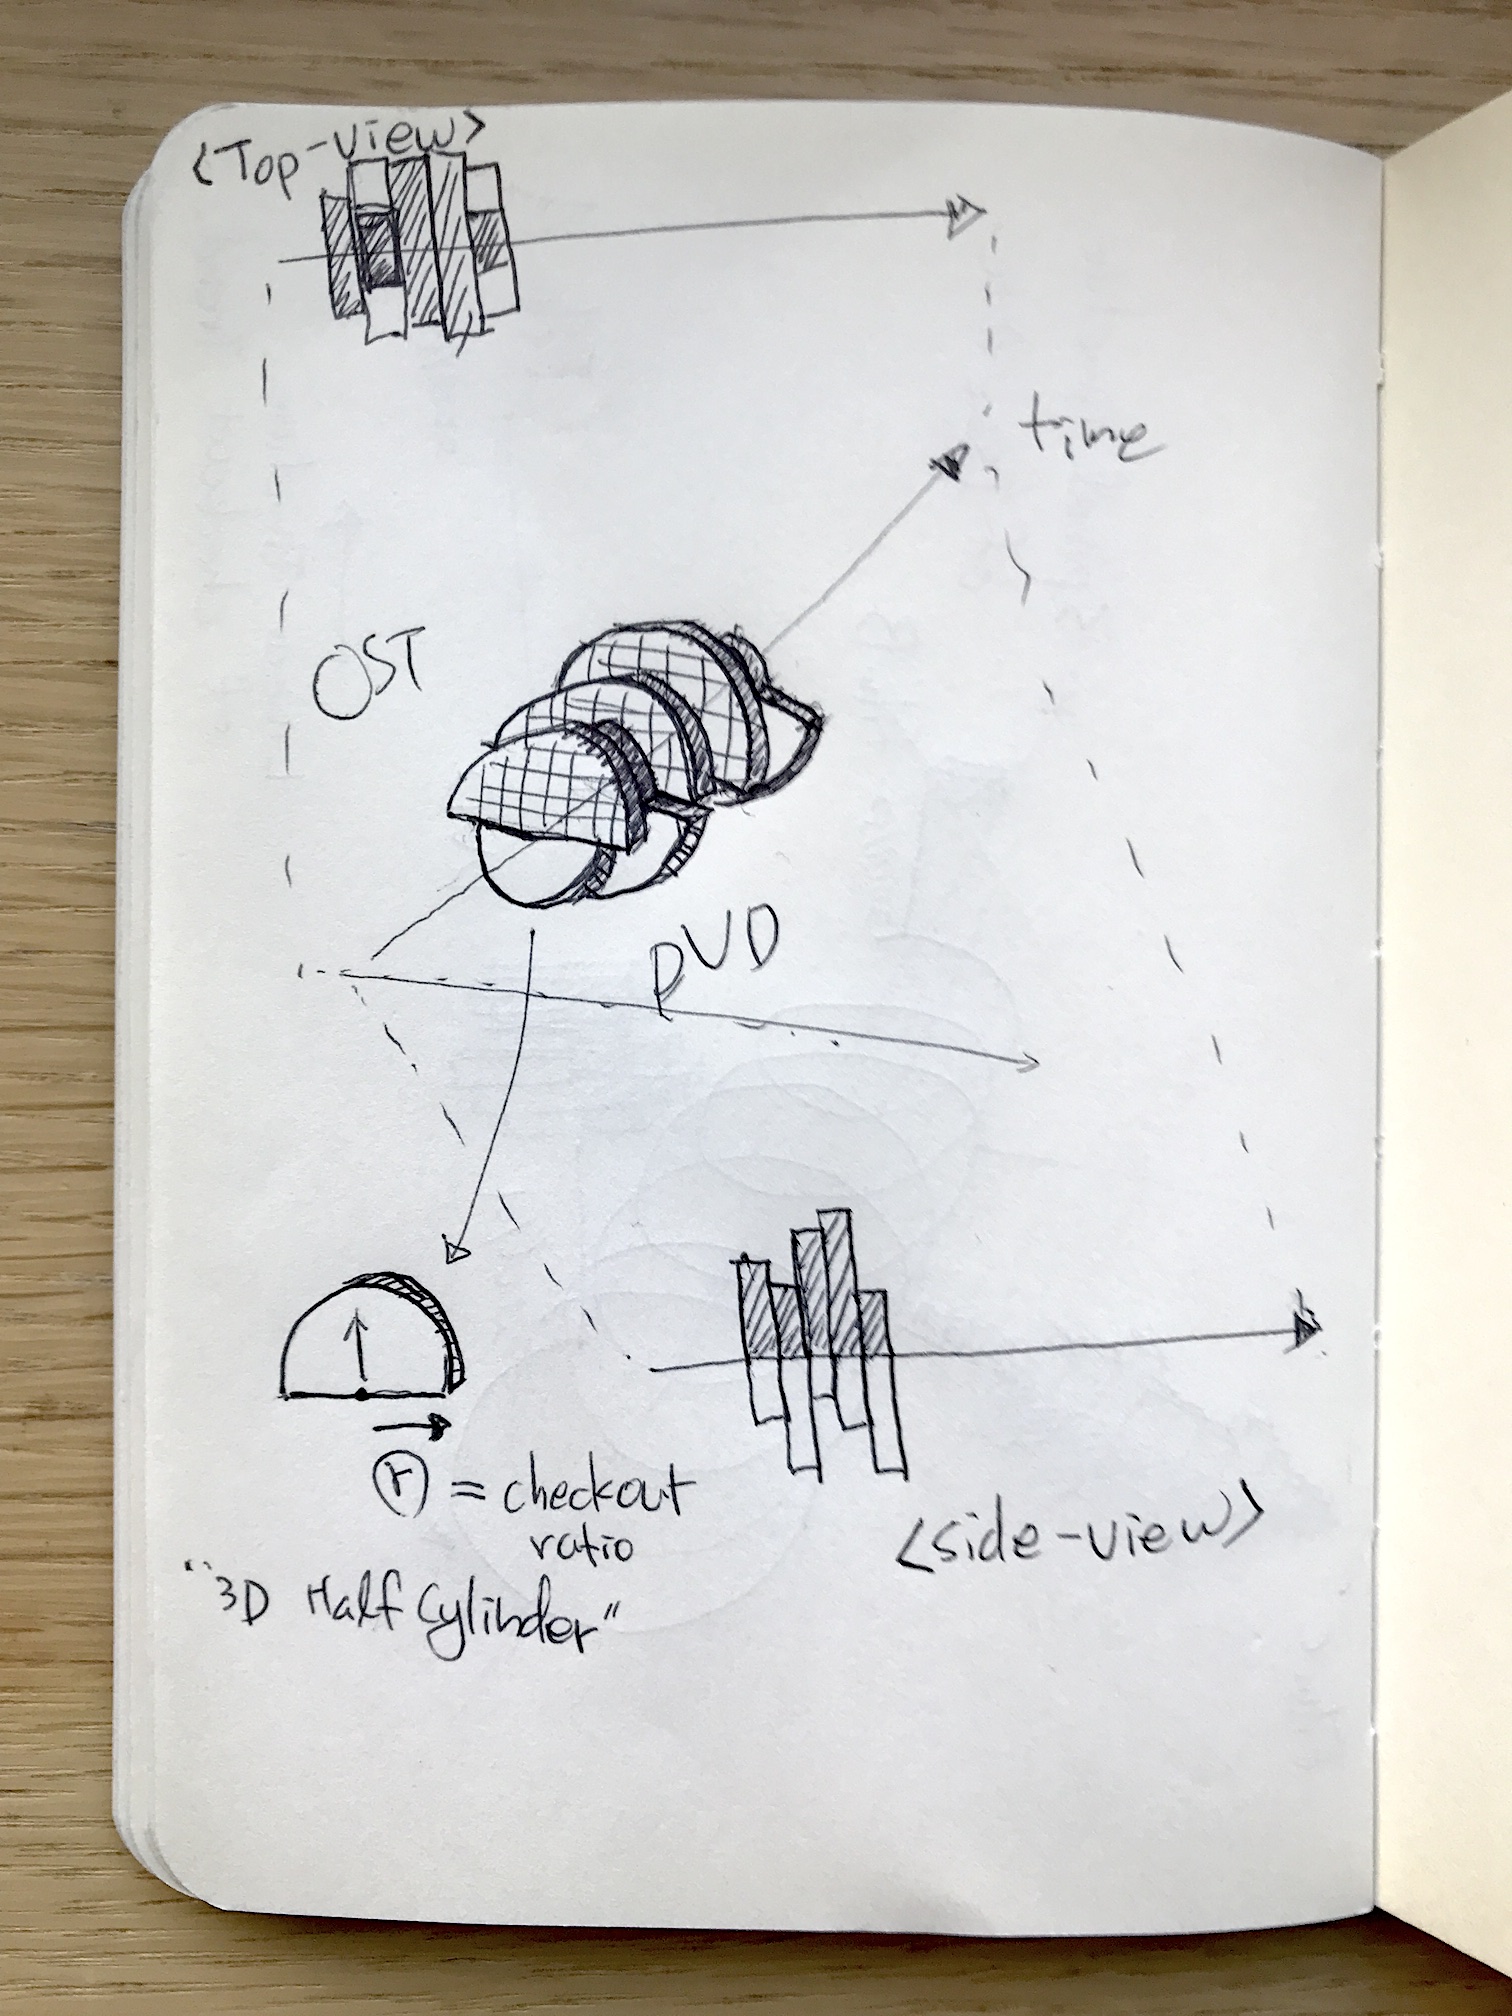 <Top-view>
time
OST
DVD
r = checkout
ratio
"3D Half Cylinder"
<side-view>